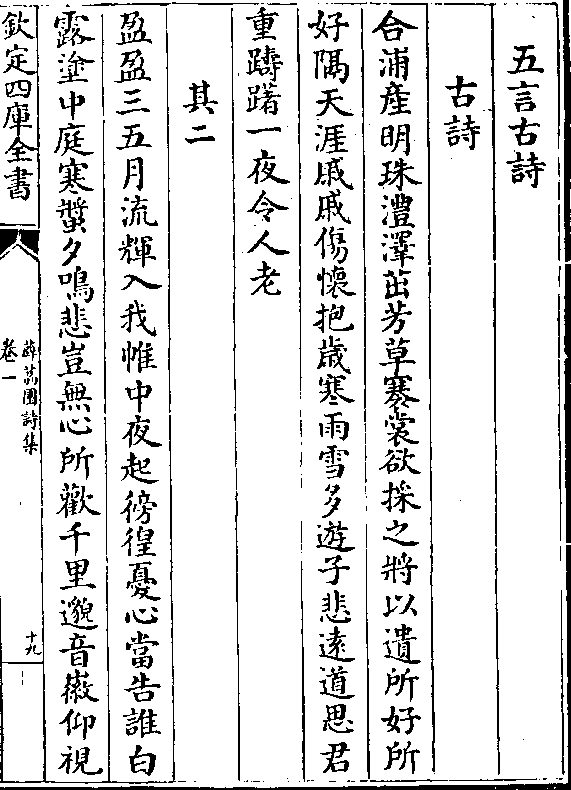 五言古詩
古詩
合浦産明珠澧澤茁芳草褰裳欲採之將以遺所好所
好隅天涯戚戚傷懷抱歲寒雨雪多遊子悲逺道思君
重躊躇一夜令人老
其二
盈盈三五月流輝入我帷中夜起徬徨憂心當告誰白
露塗中庭寒螿夕鳴悲豈無心所歡千里邈音徽仰視
欽定四庫全書
薜荔園詩集
卷一
十九